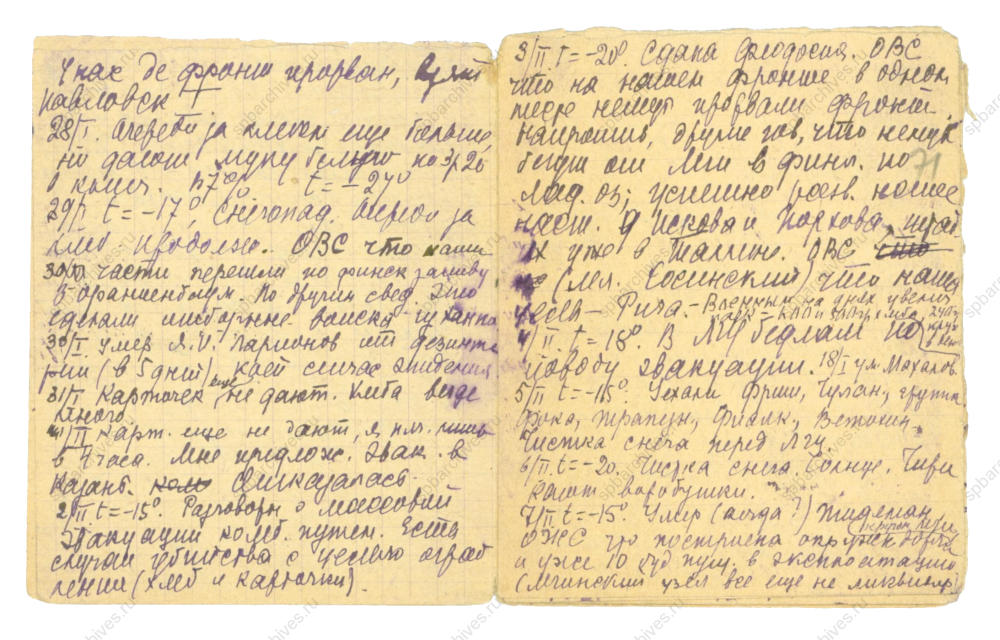 У нас де фронт прорван, взят
Павловск
28/I. Очереди за хлебом еще больше,
но дают муку белую по 3р 20
в колич. 57% t = –24°
29/I t = –17°, снегопад. Очереди за
хлеб продолж. ОВС что наши
30/I части перешли по финск заливу
в Ораниенбаум. По другим свед. это
сделали
30/I. Умер Л.И. Ларионов от дизенте
рии (в 5 дней), коей сейчас эпидемия
31/I Карточек еще не дают. Хлеба везде
много.
1/II Карт. еще не дают, я пил. лишь
в 4 часа. Мне предлож. эвак. в
Казань. Отказалась
2/II t = –15°. Разговоры о массовой
эвакуации колл. путем. Есть
случаи убийства с целью ограб
ления (хлеб и карточки).
3/II t = –20° Сдана Феодосия. ОВС
что на нашем фронте в одном
месте немцы прорвали фронт.
Напротив, другие гов, что немцы
бегут от Мги в Финл. по
Лад. оз; успешно разв. наше
наст. у Пскова и Порхова, штаб
их уже в Таллине. ОВС что
(Мел. Сосинский) что наши
Рига –
4/II. t = –18°. В ЛГУ бедлам по
поводу эвакуации. 18/I ум. Махалов.
5/II t = –15°. Уехали Фриш, Чулан, группа
Фока, Трапезн, Фиалк, Ветошн.
Чистка снега перед ЛГУ
6/II. t = –20. Чистка снега. Солнце. Чири
кают воробушки.
7/II t = –15°. Умер (когда?) Тидеман
ОЖС что построена окружн дорога
и уже 10 суд пущ. в эксплоатацию
(Мгинский узел все еще не ликвидир)
71